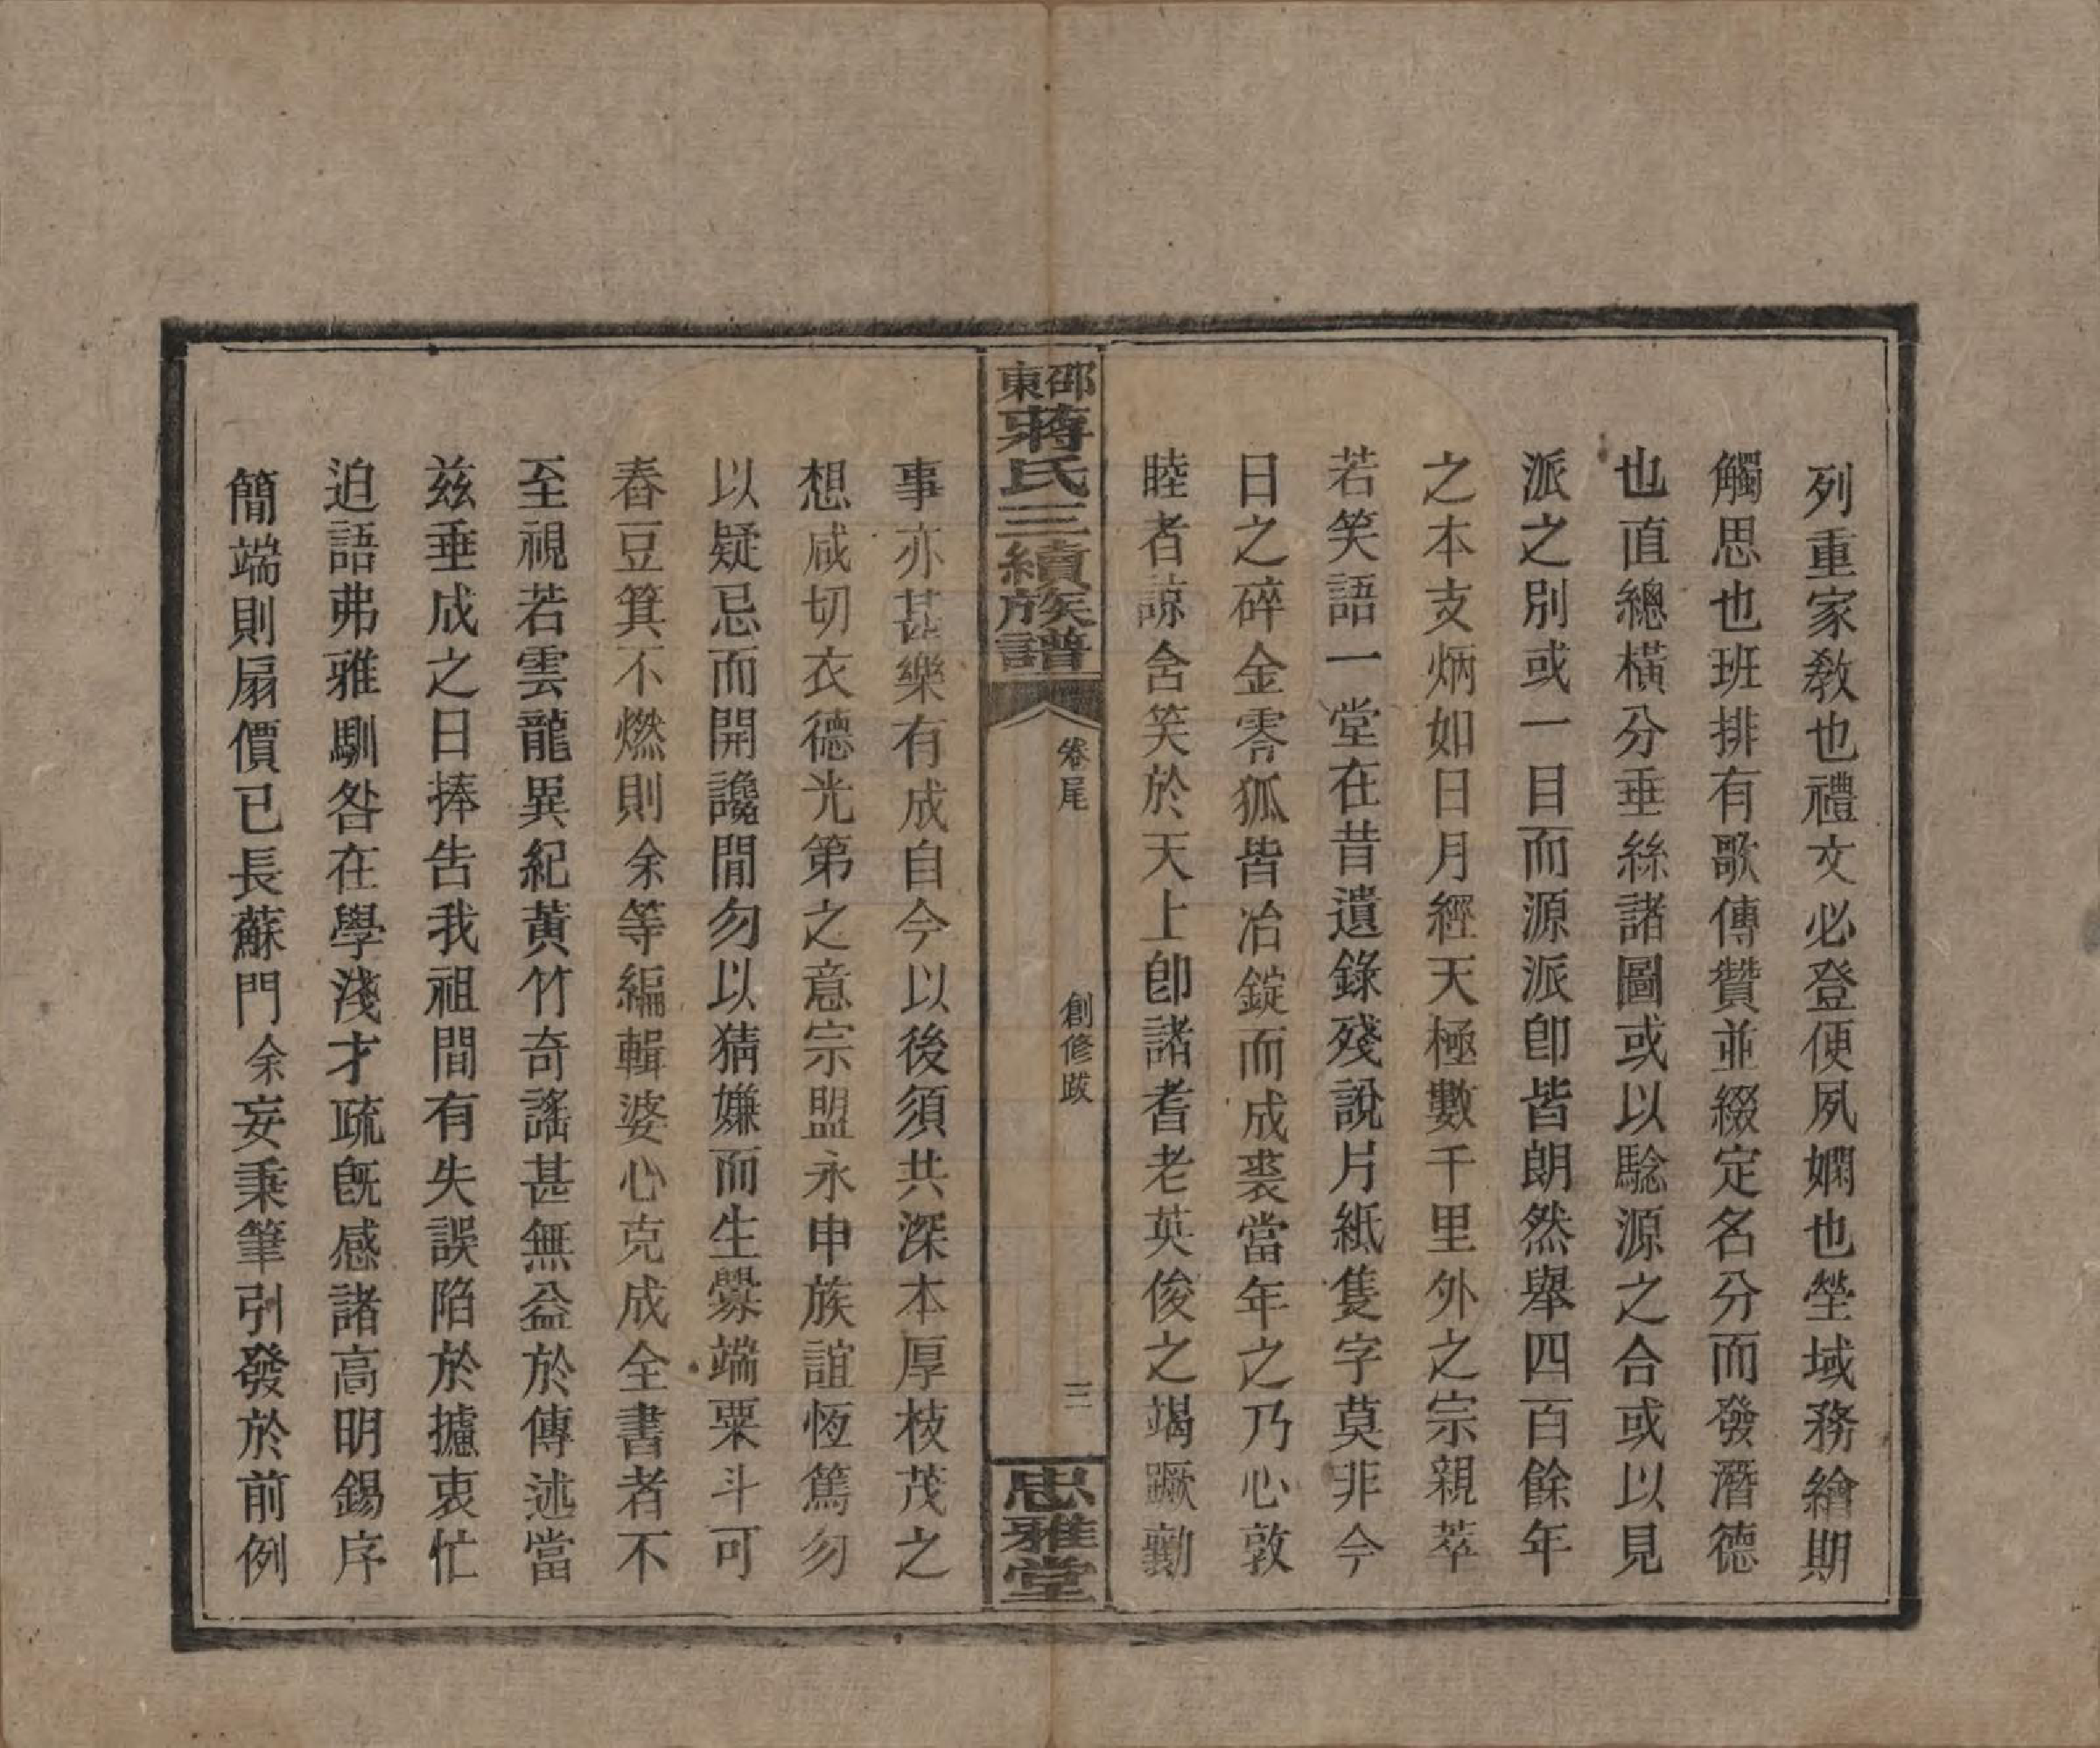 列重家教也禮文必登便夙嫻也塋域務繪期
觸思也班排有歌傳贊並綴定名分而發潛德
也直總橫分垂絲諸圖或以騐源之合或以見
派之別或一目而源派卽皆朗然舉四百餘年
之本支炳如日月經天極數千里外之宗親萃
若笑語一堂在昔遺錄殘說片紙隻字莫非今
日之碎金零狐皆冶錠而成裘當年之乃心敦
睦者諒含笑於天上卽諸耆老英俊之竭蹶勷
邵東蔣氏三續族譜
卷尾
創修跋
三
忠雅堂
事亦甚樂有成自今以後須共深本厚枝茂之
想咸切衣德光第之意宗盟永申族誼恆篤勿
以疑忌而開讒間勿以猜嫌而生釁端粟斗可
舂豆箕不燃則余等編輯婆心克成全書者不
至視若雲龍異紀黃竹奇謠甚無益於傳述當
玆垂成之日捧告我祖間有失誤陷於攄衷忙
迫語弗雅馴咎在學淺才疏旣感諸高明錫序
簡端則扇價已長蘇門余妄秉筆引發於前例